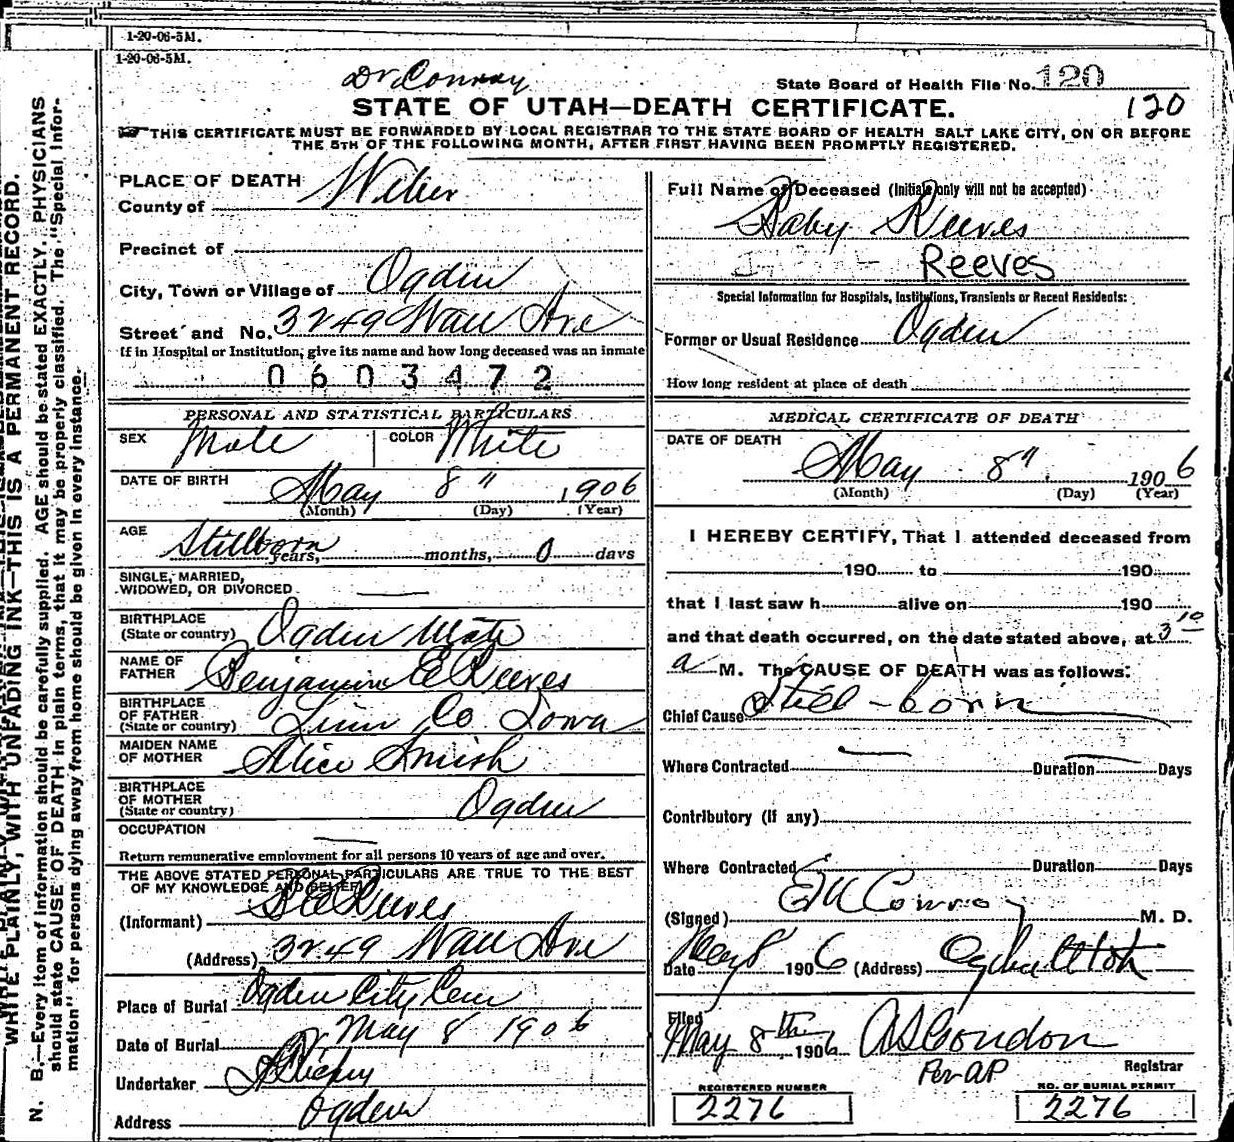 1-20-06-5M.
1-20-06-5M.
Dr Conroy
State Board of Health File No. 120
STATE OF UTAH—DEATH CERTIFICATE.
120
THIS CERTIFICATE MUST BE FORWARDED BY LOCAL REGISTRAR TO THE STATE BOARD OF HEALTH SALT LAKE CITY, ON OR BEFORE
THE 5TH OF THE FOLLOWING MONTH, AFTER FIRST HAVING BEEN PROMPTLY REGISTERED.
PLACE OF DEATH
County of Weber
Precinct of
City, Town or Village of Ogden
Street and No. 3249 Wall Ave
If in Hospital or Institution, give its name and how long deceased was an inmate
0603472
PERSONAL AND STATISTICAL PARTICULARS
SEX Male COLOR White
DATE OF BIRTH May 8" 1906
(Month) (Day) (Year)
AGE Stillborn years, months, 0 days
SINGLE, MARRIED,
WIDOWED, OR DIVORCED
BIRTHPLACE
(State or country) Ogden Utah
NAME OF
FATHER Benjamin E Reeves
BIRTHPLACE
OF FATHER
(State or country) Linn Co. Iowa
MAIDEN NAME
OF MOTHER Alice
BIRTHPLACE
OF MOTHER
(State or country) Ogden
OCCUPATION
Return remunerative employment for all persons 10 years of age and over.
THE ABOVE STATED PERSONAL PARTICULARS ARE TRUE TO THE BEST
OF MY KNOWLEDGE AND BELIEF
(Informant) B E Reeves
(Address) 3249 Wall Ave
Place of Burial Ogden City Cem
Date of Burial May 8 1906
Undertaker
Address Ogden
Full Name of Deceased (Initials only will not be accepted)
Baby Reeves
Reeves
Special Information for Hospitals, Institutions, Transients or Recent Residents:
Former or Usual Residence Ogden
How long resident at place of death
MEDICAL CERTIFICATE OF DEATH
DATE OF DEATH
May 8" 1906
(Month) (Day) (Year)
I HEREBY CERTIFY, That I attended deceased from
190 to 190
that I last saw h alive on 190
and that death occurred, on the date stated above, at 3 10
a M. The CAUSE OF DEATH was as follows:
Chief Cause Still-born
Where Contracted Duration Days
Contributory (If any)
Where Contracted Duration Days
(Signed) E M Conroy M. D.
Date May 8 1906 (Address) Ogden Utah
Filed
May 8th 1906 A S Condon
Per AP Registrar
REGISTERED NUMBER
2276
NO. OF BURIAL PERMIT
2276
WRITE PLAINLY, WITH UNFADING INK—THIS IS A PERMANENT RECORD.
N. B.—Every item of information should be carefully supplied. AGE should be stated EXACTLY. PHYSICIANS
should state CAUSE OF DEATH in plain terms, that it may be properly classified. The "Special Infor-
mation" for persons dying away from home should be given in every instance.